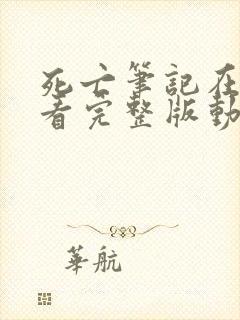 死亡筆記在
看完整版動
華航